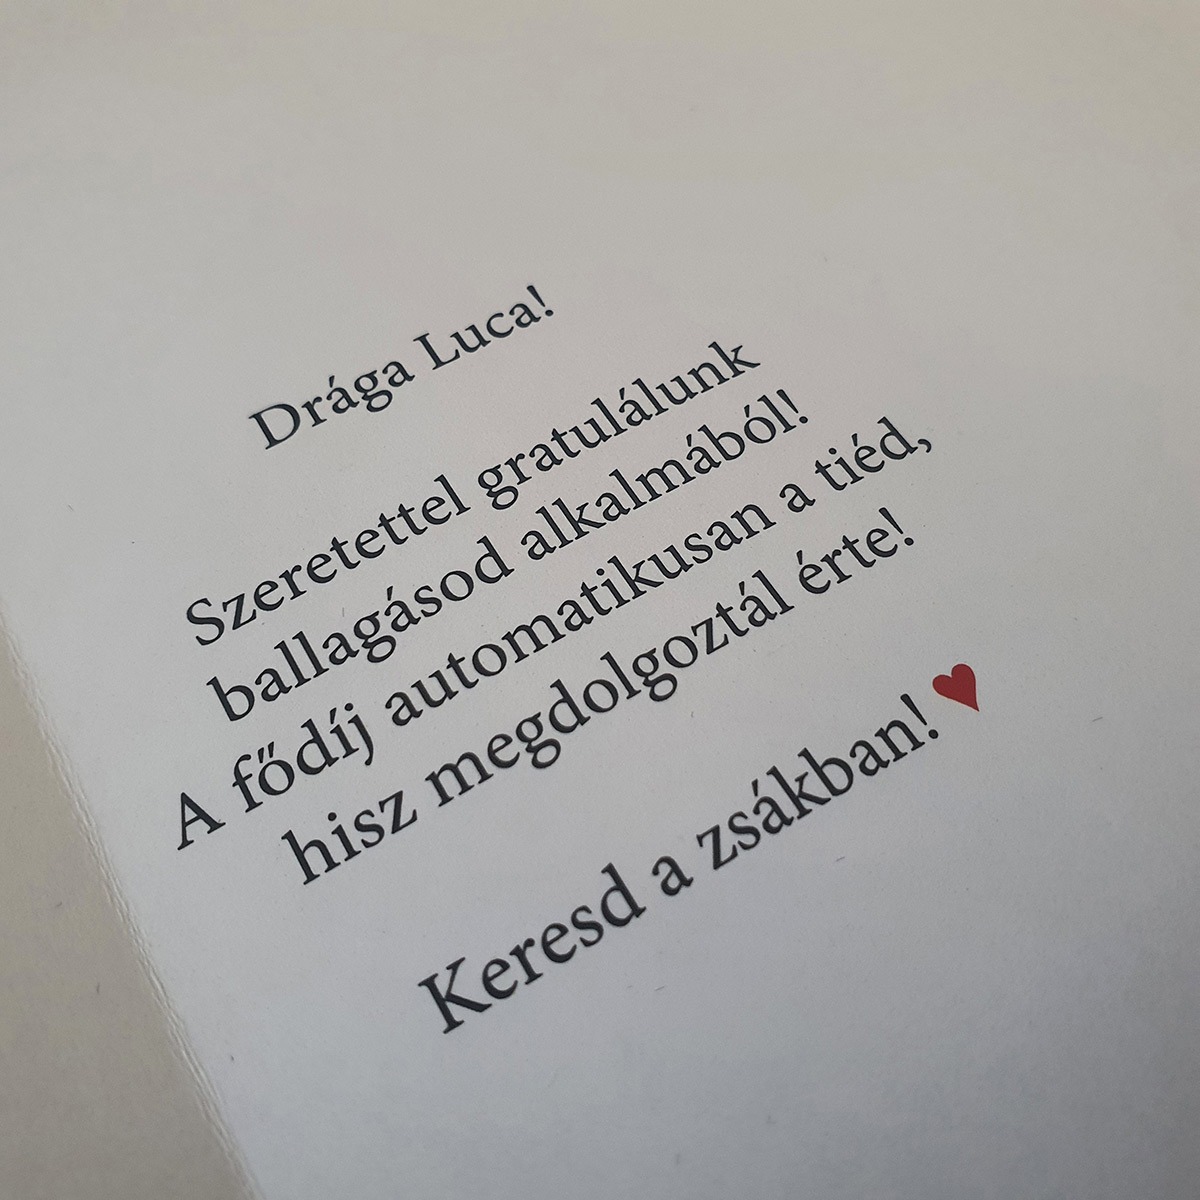 Drága Luca!
Szeretettel gratulálunk
ballagásod alkalmából!
A fődíj automatikusan a tiéd,
hisz megdolgoztál érte!
Keresd a zsákban! ♥